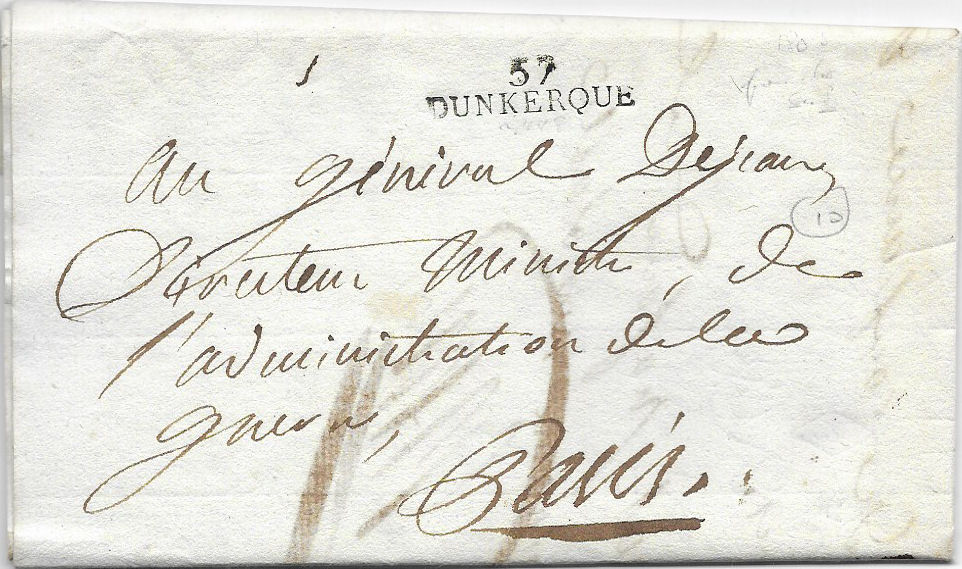 57
DUNKERQUE
au général Dejean
Directeur Ministre, de
l'administration de la
guerre,
Paris.
10